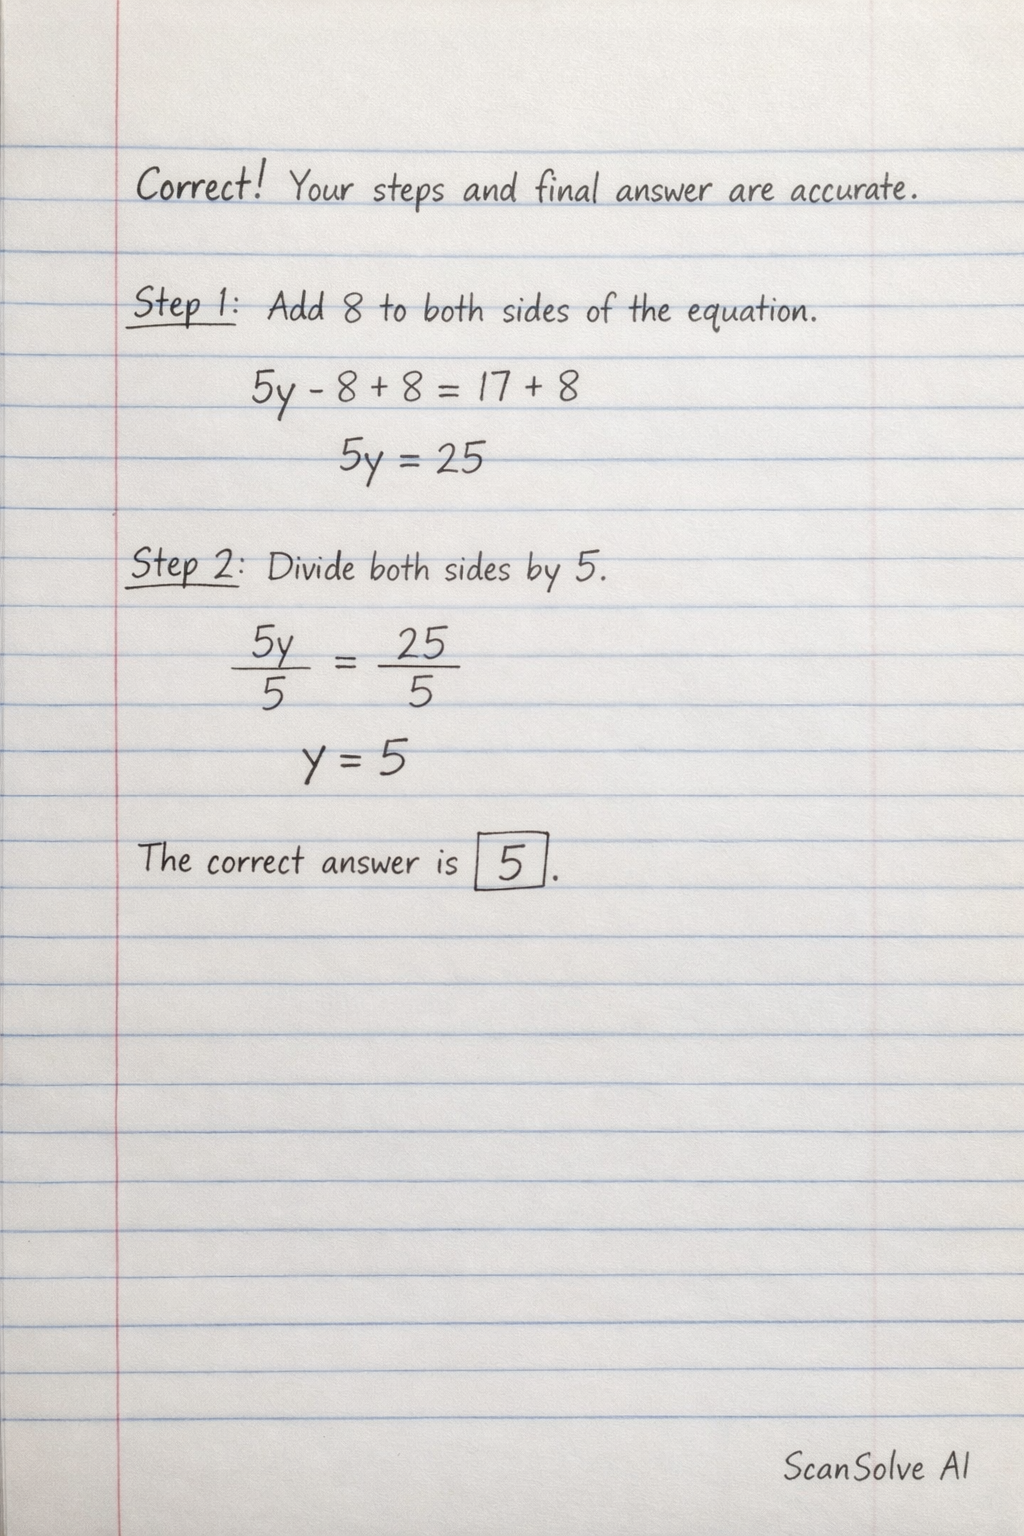 Correct! Your steps and final answer are accurate.
Step 1: Add 8 to both sides of the equation.
5y - 8 + 8 = 17 + 8
5y = 25
Step 2: Divide both sides by 5.
5y/5 = 25/5
y = 5
The correct answer is 5.
ScanSolve AI